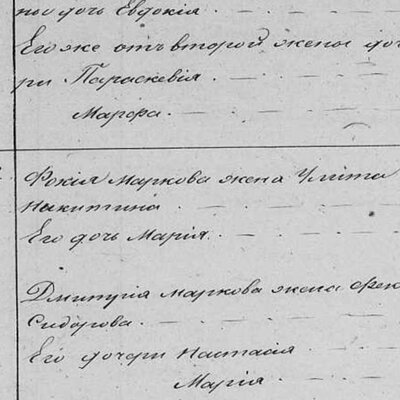 дочь Евдокія
Его же отъ второй жены доче
ри Параскевія
Марфа
Фокія Маркова жена Улита
Никитина
Его дочь Марія
Дмитрія Маркова жена
Сидорова
Его дочери Настасія
Марія